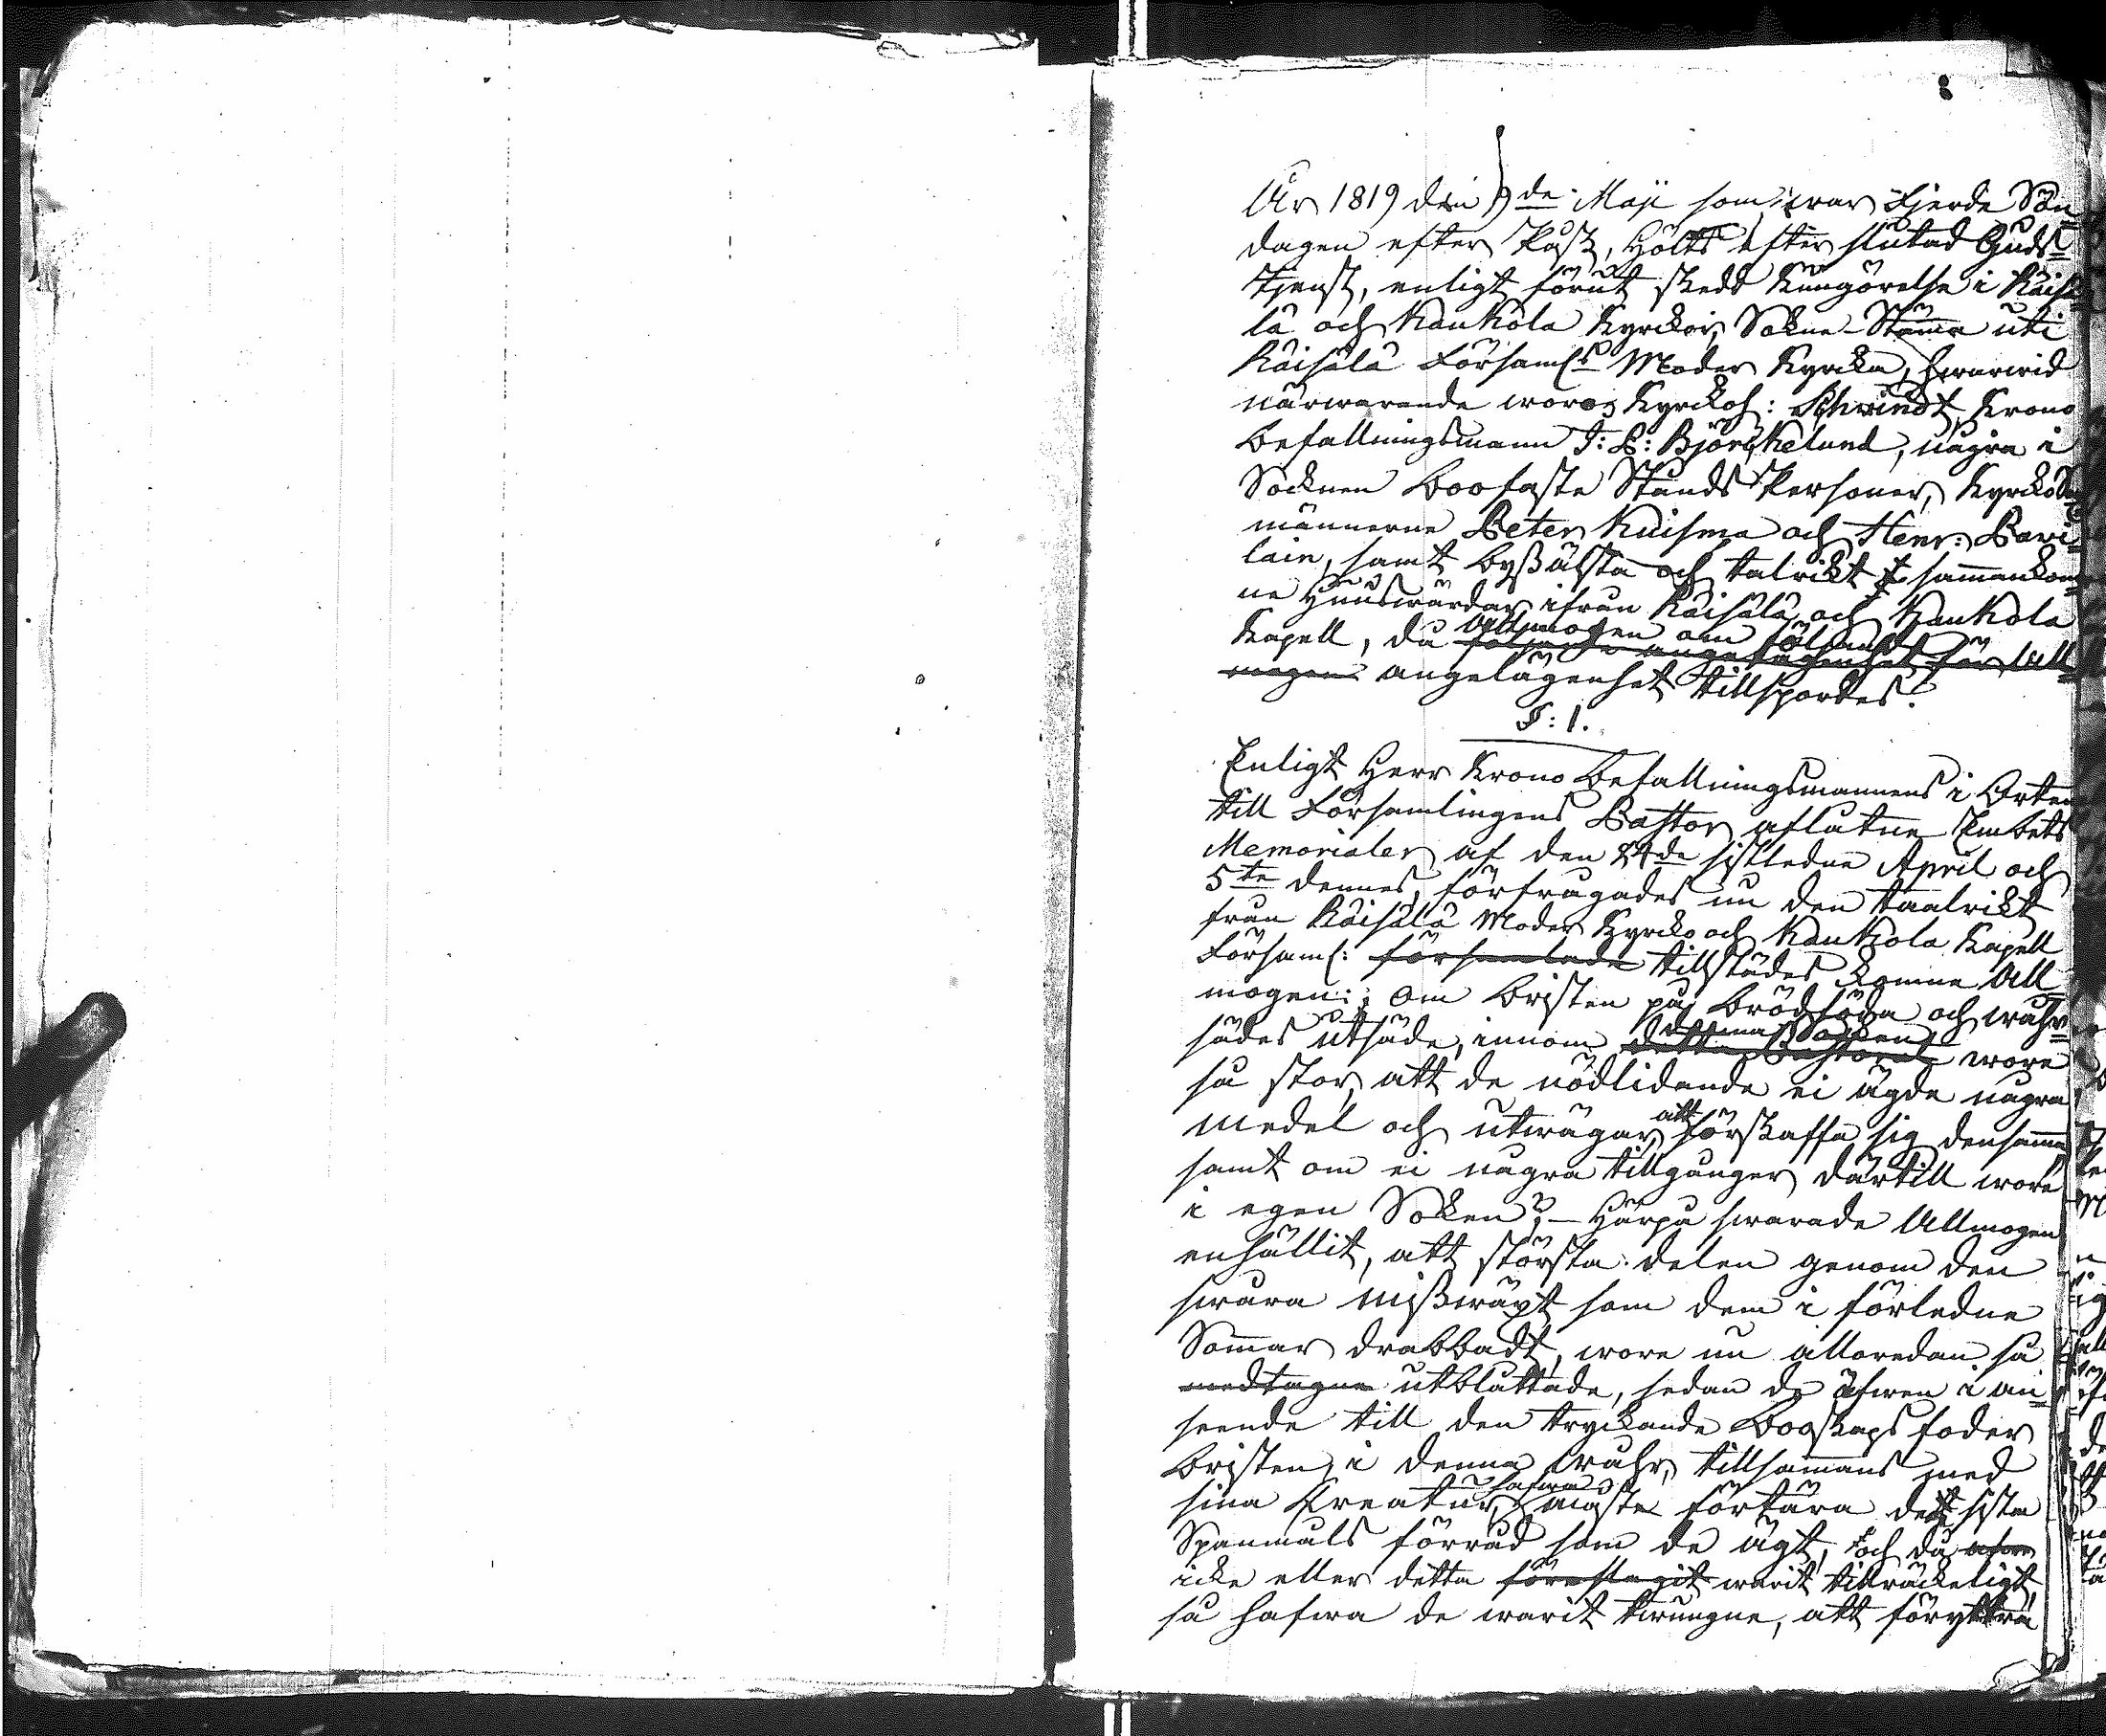 År 1819 den 9de Maji som war Fjerde Sön-
dagen efter Påsk, Hölts efter slutad Guds-
tjenst, enligt förut skedd Kungörelse i Räisä-
lä och Kaukola Kyrckor, Sokne-Stämma uti
Räisälä Församls Moder Kyrcka, hwarwid
närwarande woro; Kyrckoh: Schvindt, Krono
befallningsmann J: B: Björckelund, några i
Socknen boofaste Stånds Personer, Kyrckowärd-
männerne Peter Kuisma och Henr: Pavi-
lain, samt byßälsta och talrikt sammankom-
ne Huuswärdar ifrån Räisälä och Kaukola
Kapell, då Allmogen om följande
angelägenhet tillspordes:
§: 1.
Enligt Herr Krono befallningsmannens i Orten
till Församlingens Pastor aflåtne Embets
Memorialer af den 24de sistledne April och
5te dennes, förfrågades nu den taalrikt
från Räisälä Moder Kyrcko och Kaukola Kapell
Församl: församlade tillstädes komne All-
mogen: om bristen på brödföda och wåhr-
sädes utsäde, innom denna Socken wore
så stor, att de nödlidande ei ägde några
medel och utwägar att förskaffa sig densamma
samt om ei några tillgånger dartill wore
i egen Soken? – Härpå swarade Allmogen
enhällit, att största delen genom den
swåra mißwäxt som dem i förledne
Sommar drabbadt, wore nu allaredan så
medtagne utblåttade, sedan de äfwen i an-
seende till den tryckande booskaps foder
bristen i denna wåhr, tillsammans med
sina Kreatur hafwa måste förtära det sista
Spanmåls förråd som de ägt, och då
icke eller detta föreslagit warit tillräckeligt
så hafwa de warit twungne, att föryttra